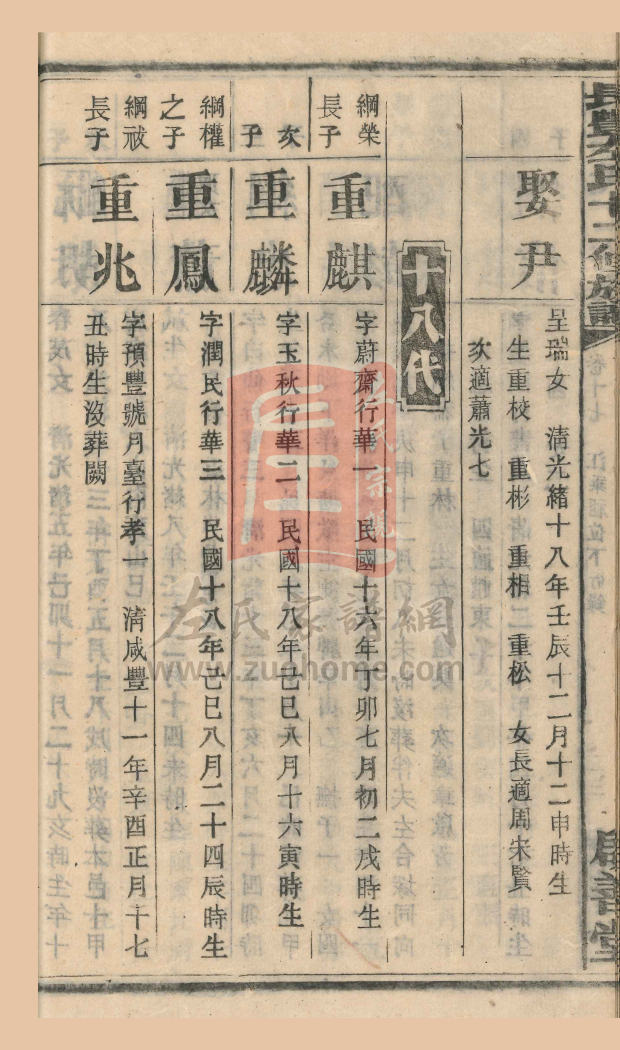 長豐左氏十二修族譜
卷十七
娶尹
呈瑞女 淸光緖十八年壬辰十二月十二申時生
生重校 重彬 重相 重松 女長適周宋賢
次適蕭光七
十八代
綱榮
長子
重麒
字蔚齋行華一 民國十六年丁卯七月初二戌時生
次
子
重麟
字玉秋行華二 民國十八年己巳八月十六寅時生
綱權
之子
重鳳
字潤民行華三 民國十八年己巳八月二十四辰時生
綱祓
長子
重兆
字預豐號月臺行孝一 淸咸豐十一年辛酉正月十七
丑時生沒葬闕
左氏家譜網
www.zuohome.com